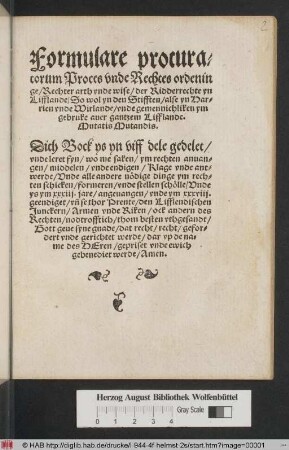 Formulare procura-
torum Proces vnde Rechtes ordenin
ge/ Rechter arth vnde wise/ der Ridderrechte yn
Lifflande/ So wol yn den Stifften/ alse yn Har-
rien vnde Wirlande/ vnde gemeynichliken ym
gebruke auer gantzem Lifflande.
Mutatis Mutandis.
Dith Bock ys yn viff dele gedelet/
vnde leret fyn/ wo me saken/ ym rechten anuan-
gen/ middelen/ vnde endigen/ Klage vnde ant-
werde/ Vnde alle andere nödige dinge ym rech-
ten schicken/ formeren/ ernde stellen schölle/ Vnde
ys ym xxxiij. jare/ angeuangen/ vnde ym xxxviij.
geendiget/ vn̄ se thor Prente/ den Lifflendischen
Junckern/ Armen vnde Riken/ ock andern des
Rechten/ nodtrofftich/ thom besten vthgesandt/
Gott geue syne gnade/ dat recht/ recht/ gefor-
dert vnde gerichtet werde/ dar yp de na-
me des HEren/ gepriset vnde ewich
gebenediet werde/ Amen.
2
Herzog August Bibliothek Wolfenbüttel
0 1 2 3 4
Gray Scale
© HAB http://diglib.hab.de/drucke/l-944-4f-helmst-2s/start.htm?image=00001